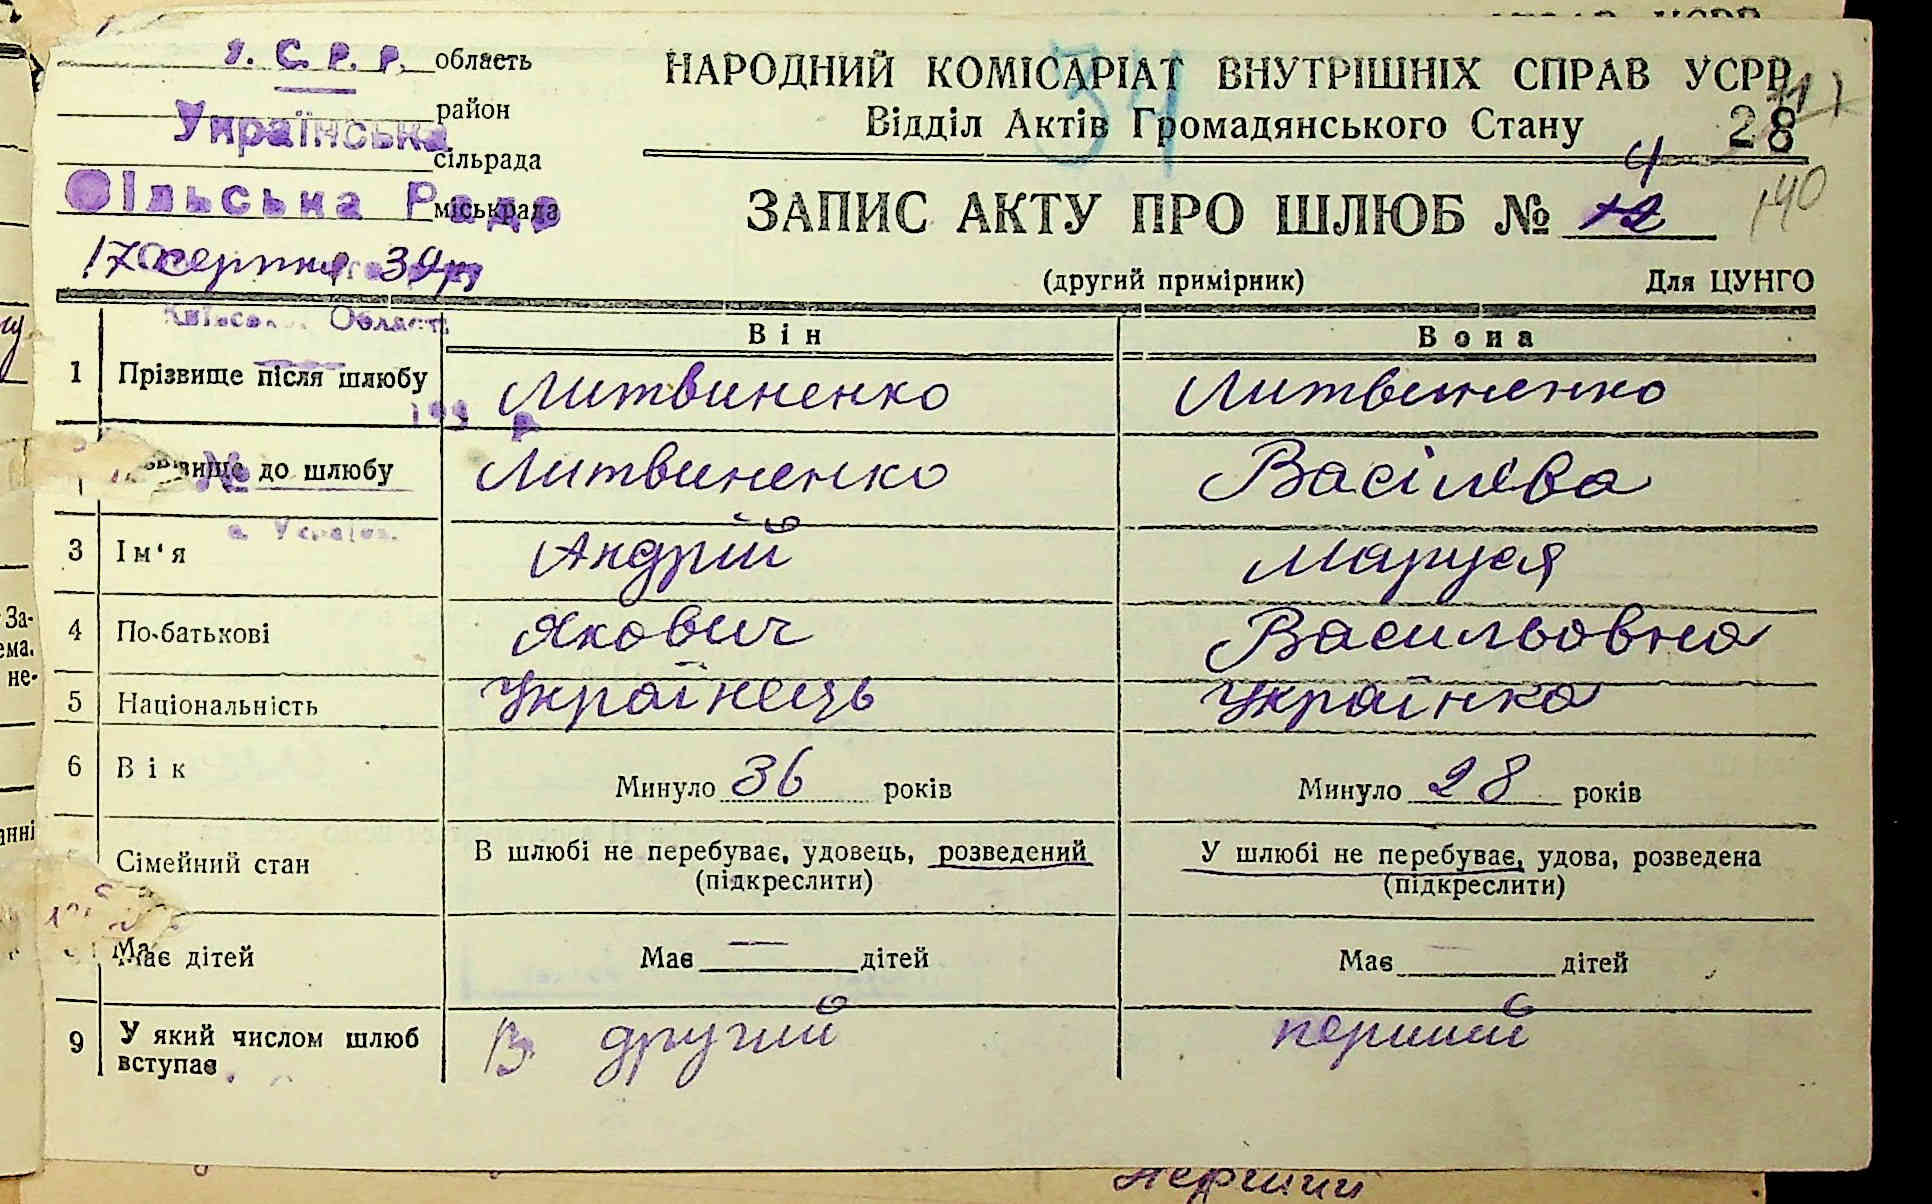 У. С. Р. Р. область
район
Українська
сільрада
Сільська Рада
міськрада
17 серпня 39р
Київськ. Області
193 р.
№
с. Україн.
НАРОДНИЙ КОМІСАРІАТ ВНУТРІШНІХ СПРАВ УСРР
Відділ Актів Громадянського Стану
34
28
4
ЗАПИС АКТУ ПРО ШЛЮБ № 12
140
(другий примірник) Для ЦУНГО
Він Вона
1 Прізвище після шлюбу Литвиненко Литвиненко
до шлюбу Литвиненко Васілєва
3 Ім'я Андрій Маруся
4 По-батькові Якович Васильовна
5 Національність Українець Українка
6 Вік Минуло 36 років Минуло 28 років
Сімейний стан В шлюбі не перебуває, удовець, розведений У шлюбі не перебуває, удова, розведена
(підкреслити) (підкреслити)
Має дітей Має — дітей Має — дітей
9 У який числом шлюб вступає В другий перший
За-
ема.
не-
анні
перший